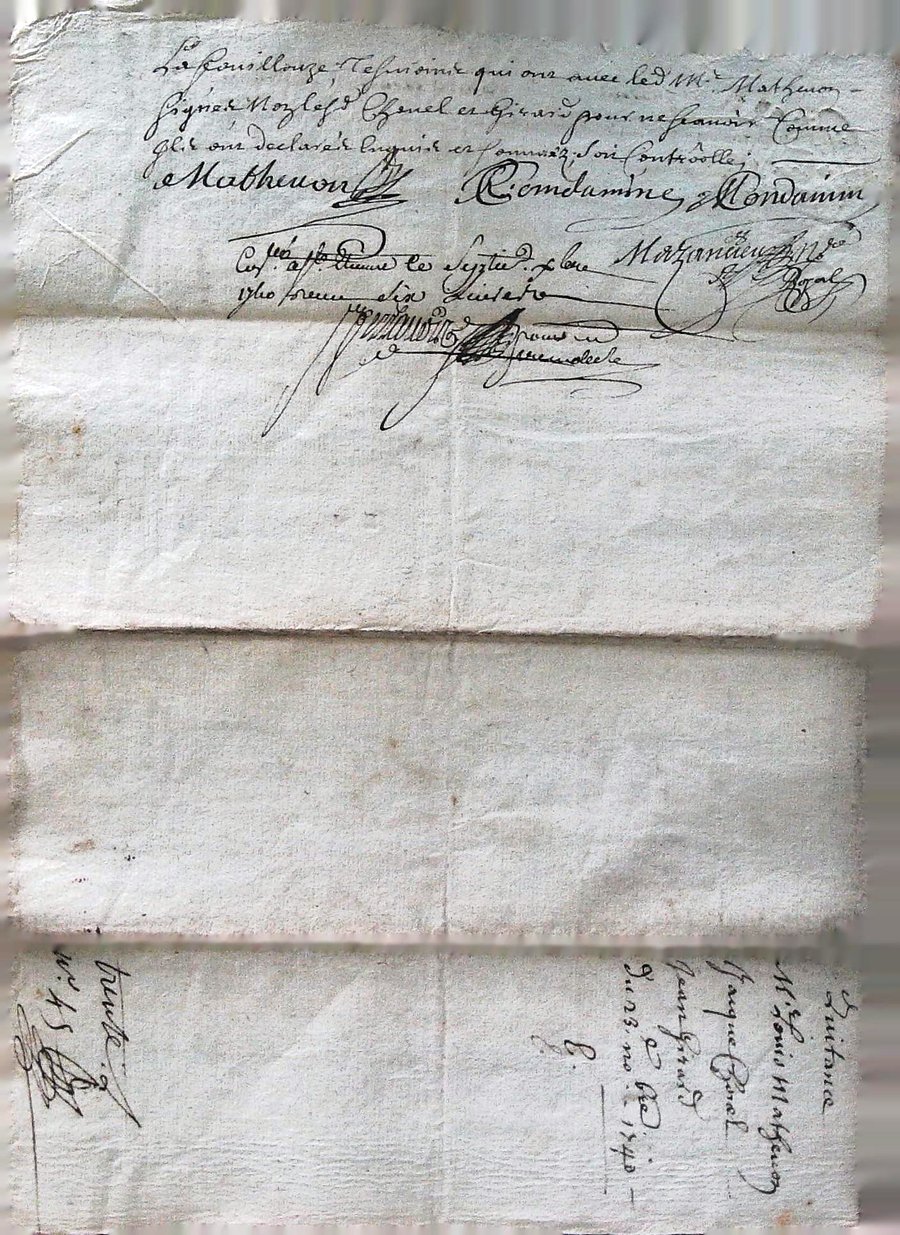 La fouillouze, Tesmoins qui ont avec led Mr. Mathevon
signés Non lesd Chenel et Girard pour ne scavoir Comme
ils ont declarés Enquis et sommez, soit Controolle;
Mathevon
C. Comdamine
Condamin
Mazandieu Nre
Royal
Con. a St. Etienne le Septie. xbre
1740 six
trente
no. 45
Quitance
Mr. Louis Mathevon
Jaque Chenel
Jean Girard
du 23. no. bre 1740